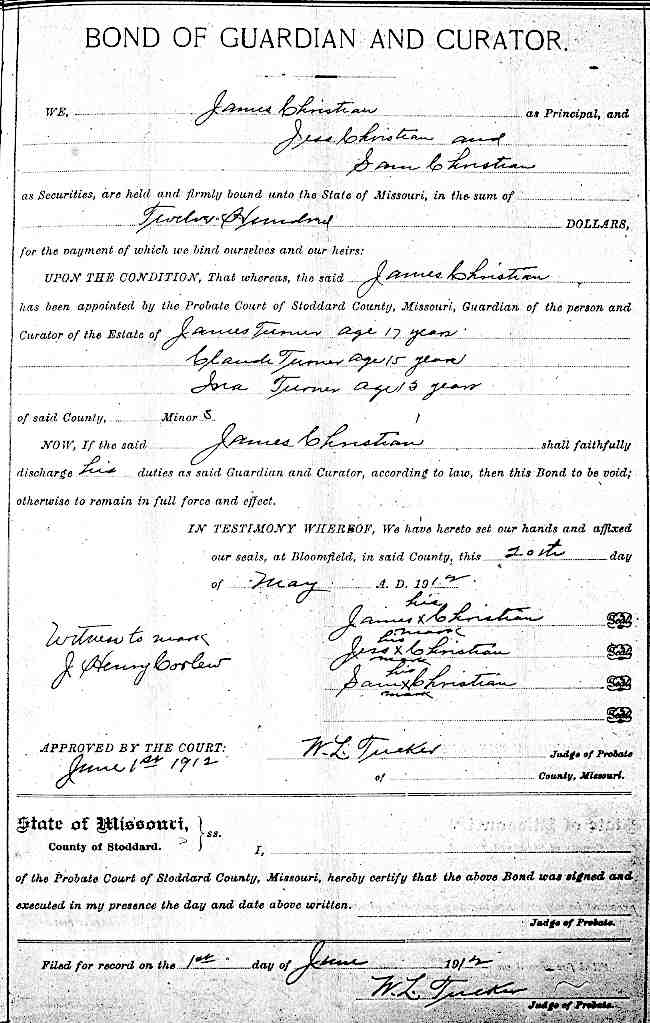 BOND OF GUARDIAN AND CURATOR.
WE, James Christian as Principal, and
Jess Christian and
Sam Christian
as Securities, are held and firmly bound unto the State of Missouri, in the sum of
Twelve Hundred DOLLARS,
for the payment of which we bind ourselves and our heirs:
UPON THE CONDITION, That whereas, the said James Christian
has been appointed by the Probate Court of Stoddard County, Missouri, Guardian of the person and
Curator of the Estate of James Turner age 17 years
Claude Turner age 15 years
Ira Turner age 13 years
of said County, Minor s
NOW, If the said James Christian shall faithfully
discharge his duties as said Guardian and Curator, according to law, then this Bond to be void;
otherwise to remain in full force and effect.
IN TESTIMONY WHEREOF, We have hereto set our hands and affixed
our seals, at Bloomfield, in said County, this 20th day
of May A. D. 1912
his
James x Christian Seal
mark
his
Witness to mark
Jess x Christian Seal
mark
J Henry Corlew
his
Sam x Christian Seal
mark
Seal
APPROVED BY THE COURT: W. L. Tucker Judge of Probate
June 1st 1912 of County, Missouri.
State of Missouri, } ss.
County of Stoddard. I,
of the Probate Court of Stoddard County, Missouri, hereby certify that the above Bond was signed and
executed in my presence the day and date above written.
Judge of Probate.
Filed for record on the 1st day of June 1912
W. L. Tucker
Judge of Probate.